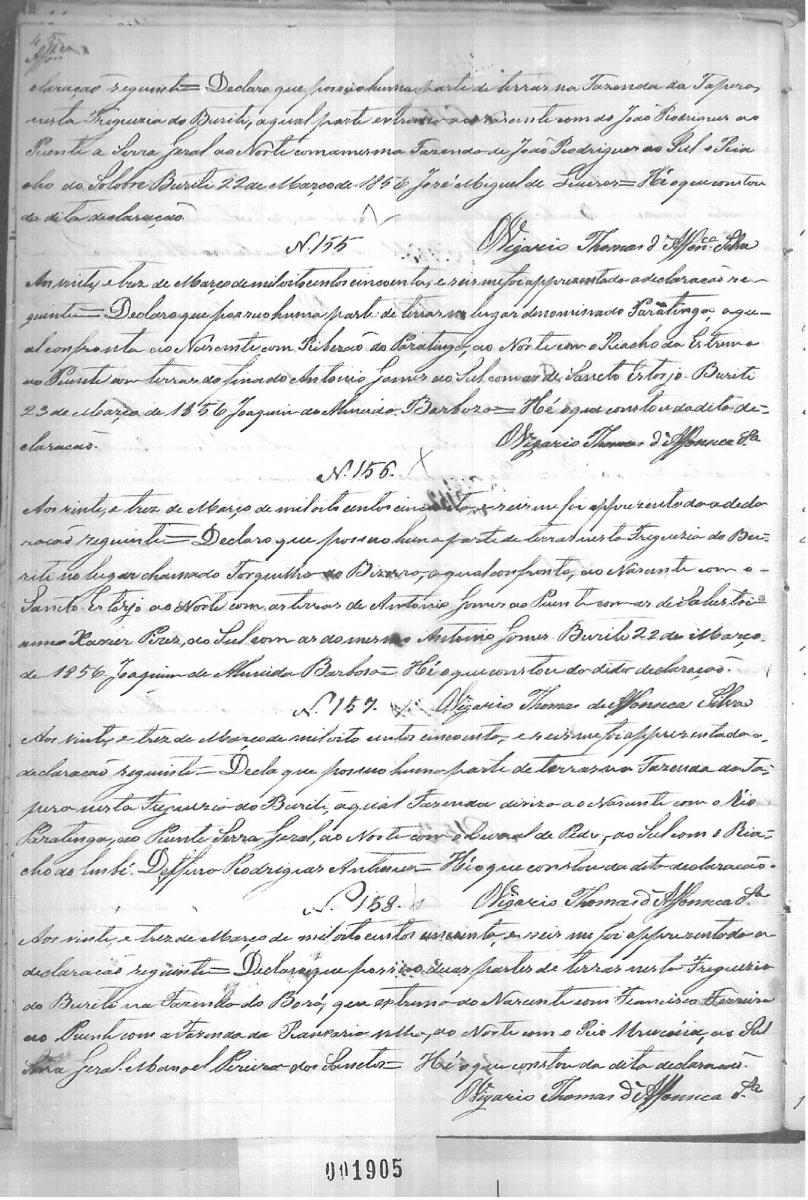 45
Affon.ca
claração seguinte = Declaro que possuo huma parte de terras na Fazenda da Tapera,
nesta Freguezia do Buriti, a qual parte extrema ao nascente com do João Rodrigues ao
Puente a Serra Geral ao Norte com a mesma Fazenda de João Rodrigues ao Sul o Ria
cho do Solobro Buriti 22 de Março de 1856 José Miguel de = Hé o que constou
da dita declaração.
N. 155 O Vigario Thomas d'Affon.ca Silva
Aos vinte, e trez de Março de mil oito centos cincoenta, e seis me foi appresentado a declaração se-
guinte = Declaro que possuo huma parte de terras no lugar denominado Paratinga, a qu-
al confronta ao Nascente com Ribeirão do Paratinga, ao Norte com o Riacho da Extrema
ao Puente com terras do finado Antonio Gomes ao Sul com as de Sancto Estevo. Buriti
23 de Março de 1856 Joaquim de Almeida Barboza = Hé o que constou da dita de-
claracão. O Vigario Thomas d'Affonseca S.a
N. 156.
Aos vinte, e trez de Março de mil oito centos cincoenta, e seis me foi appresentado a decla
racão seguinte = Declaro que possuo huma parte de terras nesta Freguezia do Bu-
riti no lugar chamado Forquilha do Bizerro, a qual confronta, ao Nascente com o
Sancto Estevo ao Norte com as terras de Antonio Gomes ao Puente com as de
Xavier Perez, do Sul com as do mesmo Antonio Gomes Buriti 22 de Março,
de 1856 Joaquim de Almeida Barbosa = Hé o que constou da dita declaração.
N. 157. O Vigario Thomas de Affonseca Silva
Aos vinte, e trez de Março de mil oito centos cincoenta, e seis me foi appresentada a
declaracão seguinte = Decla que possuo huma parte de terras na Fazenda da Ta-
pera nesta Freguezia do Buriti, a qual Fazenda diviza ao Nascente com o Rio
Paratinga, ao Puente Serra Geral, ao Norte com o de, ao Sul com o Ria-
cho do Rodrigues = Hé o que constou da dita declaracão.
N. 158. O Vigario Thomas d'Affonseca S.a
Aos vinte, e trez de Março de mil oito centos cincoenta, e seis me foi appresentado a
declaração seguinte = Declaro que possuo duas partes de terras nesta Freguezia
do Buriti na Fazenda do Boró, que extrema do Nascente com Francisco Ferreira
ao Puente com a Fazenda da, ao Norte com o Rio Urucuia, ao Sul
Serra Geral. Manoel Pereira dos Sanctos = Hé o que constou da dita declaracaõ.
O Vigario Thomas d'Affonseca S.a
001905